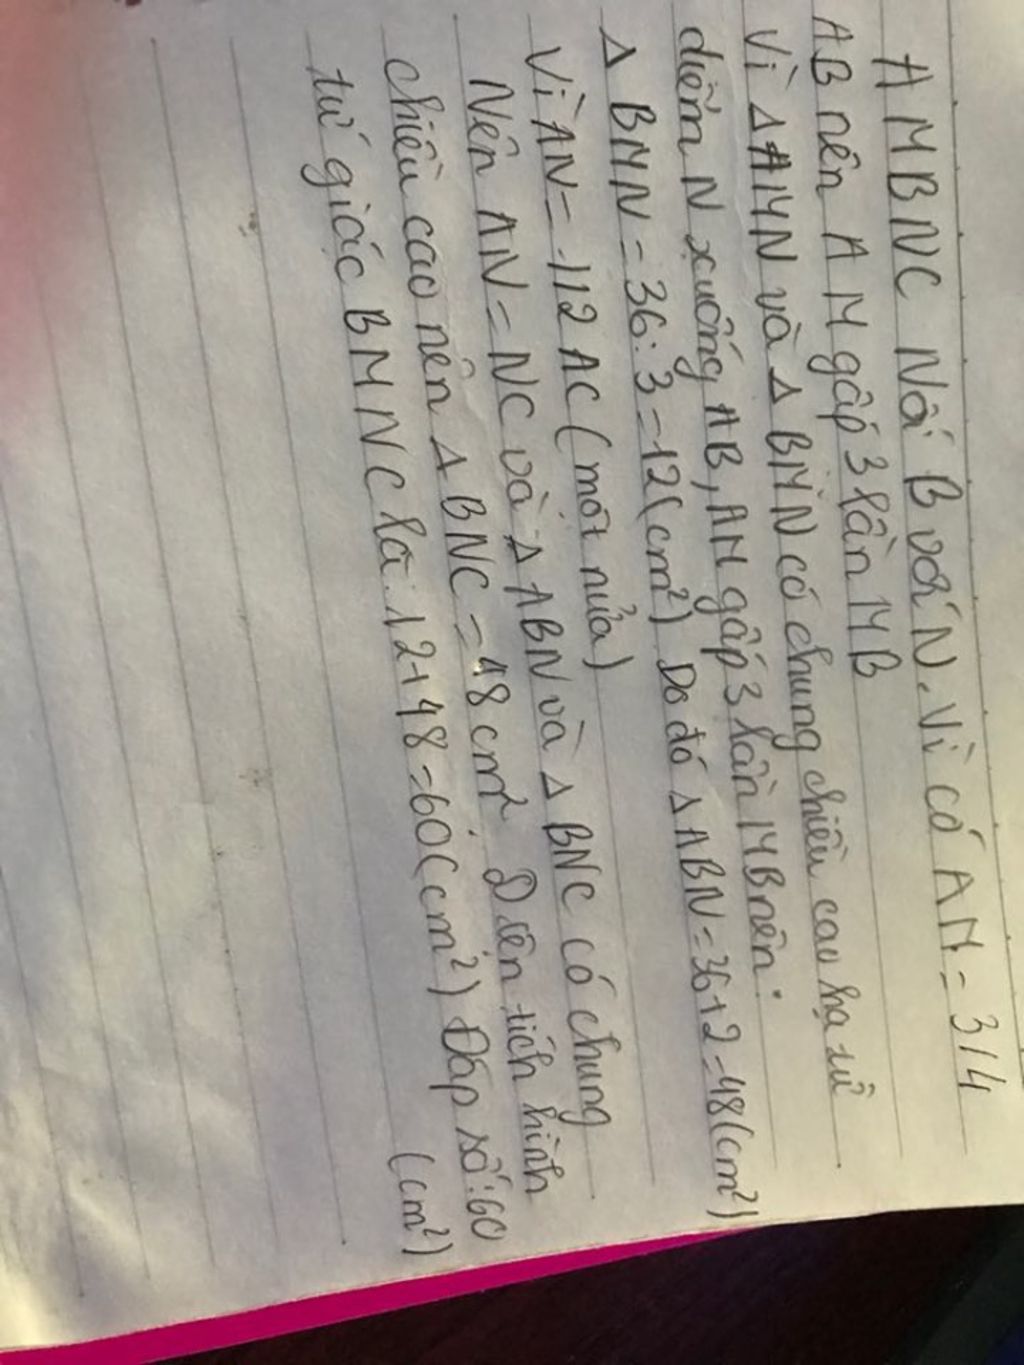 AMBNC Nối B với N. Vì có AM = 3/4
AB nên AM gấp 3 lần MB
Vì Δ AMN và Δ BMN có chung chiều cao hạ từ
điểm N xuống AB, AM gấp 3 lần MB nên:
Δ BMN = 36:3 = 12(cm²) Do đó Δ ABN = 36+2 = 48(cm²)
Vì AN = 112 AC (một nửa)
Nên AN = NC và Δ ABN và Δ BNC có chung
chiều cao nên Δ BNC = 48 cm² Diện tích hình
tứ giác BMNC là: 12+48 = 60(cm²) Đáp số: 60
(cm²)